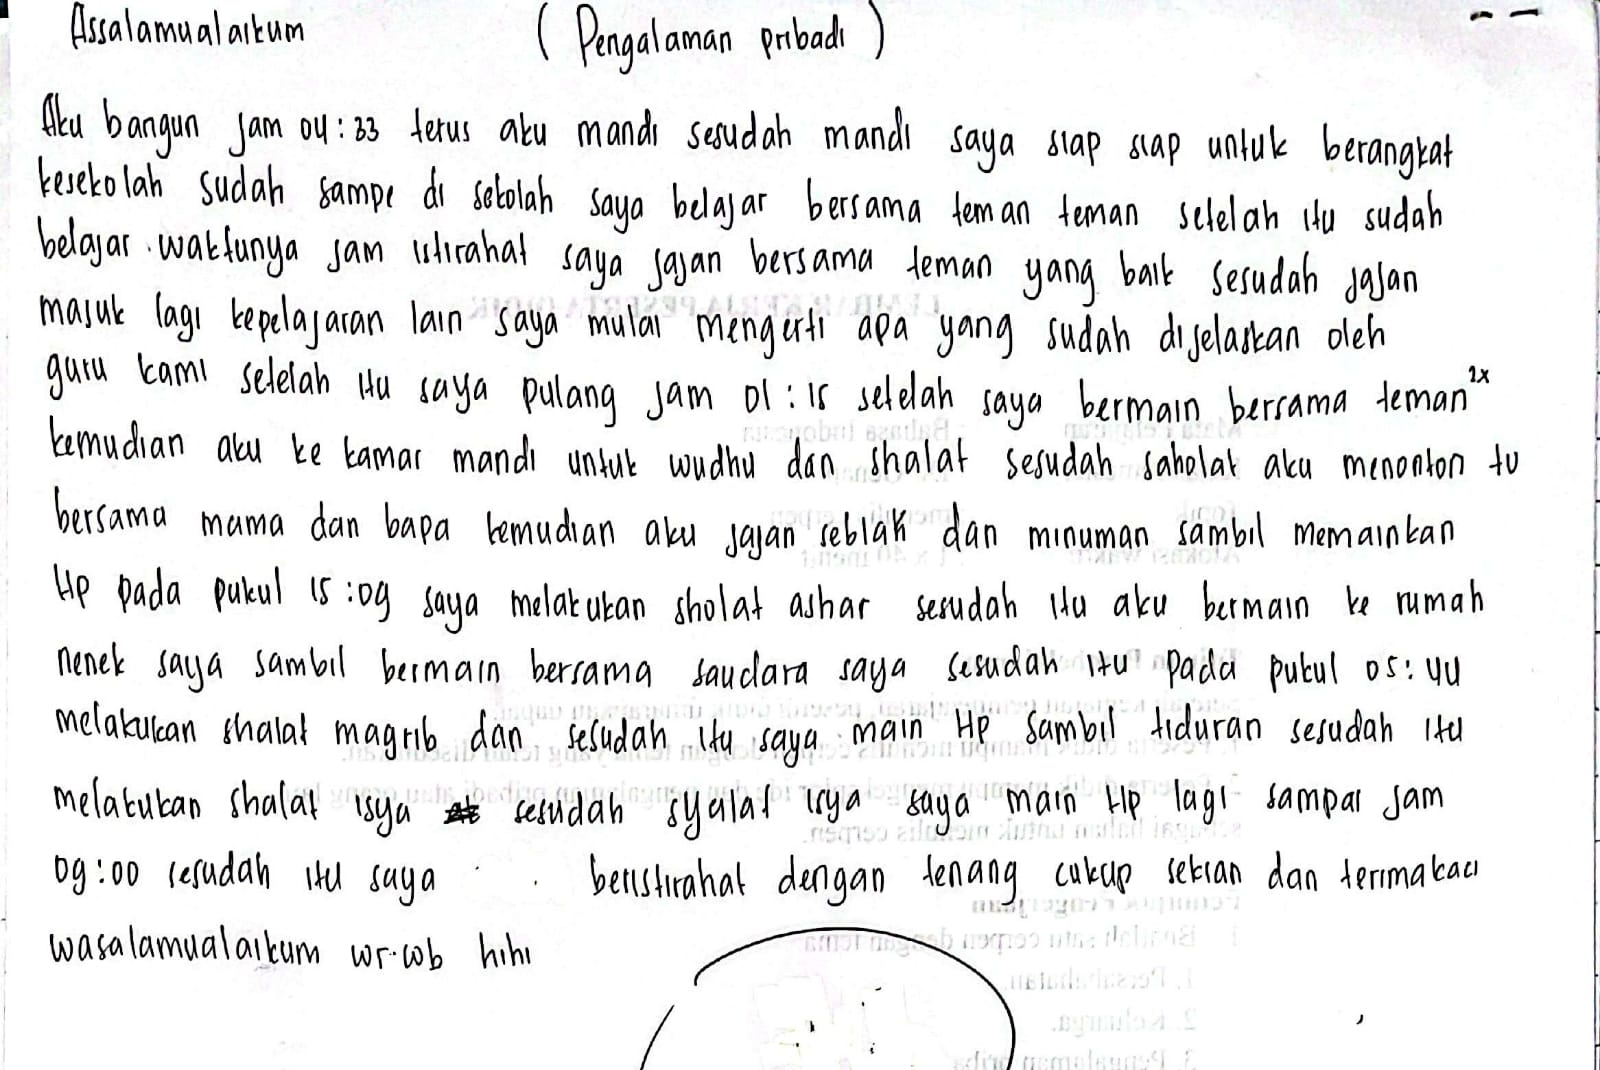 Assalamualaikum ( Pengalaman pribadi )
Aku bangun jam 04:33 terus aku mandi sesudah mandi saya siap siap untuk berangkat
kesekolah sudah sampe di sekolah saya belajar bersama teman teman setelah itu sudah
belajar. waktunya jam istirahat saya jajan bersama teman yang baik sesudah jajan
masuk lagi kepelajaran lain saya mulai mengerti apa yang sudah dijelaskan oleh
guru kami setelah itu saya pulang jam 01:15 setelah saya bermain bersama teman 2x
kemudian aku ke kamar mandi untuk wudhu dan shalat sesudah saholat aku menonton tv
bersama mama dan bapa kemudian aku jajan seblak dan minuman sambil memainkan
Hp pada pukul 15:09 saya melakukan sholat ashar sesudah itu aku bermain ke rumah
nenek saya sambil bermain bersama saudara saya sesudah itu pada pukul 05:44
melakukan shalat magrib dan sesudah itu saya main HP sambil tiduran sesudah itu
melakukan shalat isya sesudah syalat isya saya main Hp lagi sampai jam
09:00 sesudah itu saya beristirahat dengan tenang cukup sekian dan terimakaci
wasalamualaikum wr.wb hihi